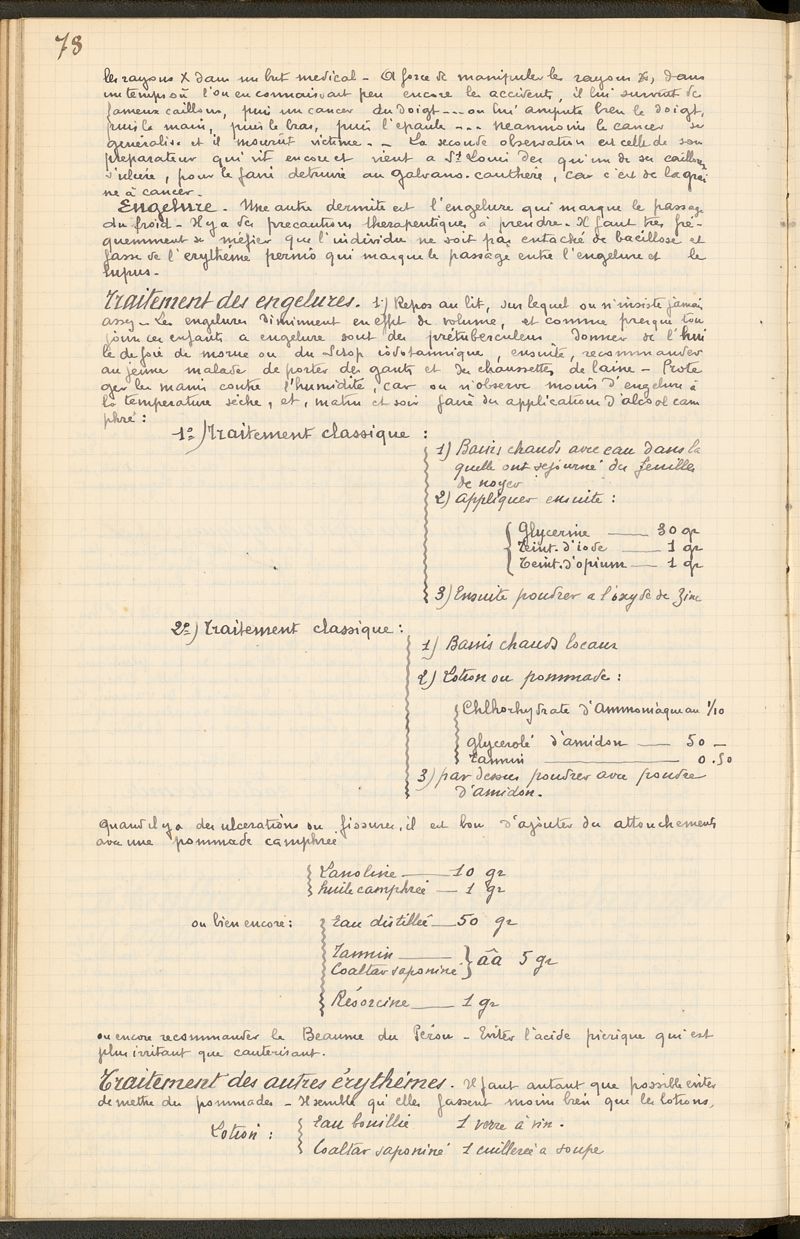 78
les rayons X dans un but medical - A force de manipuler les rayons X, dans
un temps où l'on en connaissait peu encore les accidents, il lui survint de
fameux caillons, puis un cancer du doigt --- on lui ampute bien le doigt,
puis la main, puis le bras, puis l'epaule --- neanmoins le cancer se
généralise et il mourut victime. - La seconde observation est celle de son
preparateur qui vit encore et vient a St Louis des qu'un de ses caillons
s'ulcère, pour le faire detruire au galvano-cauthère, car c'est de la grai
ne à cancer.
Engelure. Une autre dermite est l'engelure qui marque le passage
du froid - Il y a des precautions therapeutiques à prendre. Il faut tres fré-
quemment se méfier que l'individu ne soit pas entaché de bacillose et
fasse de l'erythème pernio qui marque le passage entre l'engelure et le
lupus.
Traitement des engelures. 1) Repos au lit, sur lequel on n'insiste jamais
assez - Les engelures diminuent en effet de volume, et comme presque tou
jours ces enfants a engelure sont des prétuberculeux donner de l'hui
le de foie de morue ou du Sirop iodotannique, ensuite, recommander
au jeune malade de porter des gants et des chaussettes de laine - Proté
ger les mains contre l'humidité, car on n'observe moins d'engelure à
la temperature sèche, et, matin et soir faire des applications d'alcool cam
phré :
1º) Traitement classique :
1) Bains chauds avec eau dans la
quelle ont sejourné des feuilles
de noyer
2) Appliquer ensuite :
Glycerine — 30 gr
Teint. d'iode — 1 gr
Teint. d'opium — 1 gr
3) Ensuite poudrer a l'oxyde de Zinc
2º) Traitement classique :
1) Bains chauds locaux
2) Lotion ou pommade :
Chlhorhydrate d'Ammoniaque au 1/10
Glycerolé d'amidon — 50 -
Tannin — 0.50
3) par dessus poudrer avec poudre
d'amidon.
Quand il y a des ulcerations ou fissures, il est bon d'ajouter des attouchements
avec une pommade camphrée
Lanoline — 10 gr
huile camphrée — 1 gr
ou bien encore : Eau distillée — 50 gr
Tannin —
Coaltar saponiné } ââ 5 gr
Résorcine — 1 gr
ou encore recommander le Beaume du Pérou - Eviter l'acide picrique qui est
plus irritant que cauterisant.
Traitement des autres érythèmes. Il faut autant que possible eviter
de mettre des pommades - Il semble qu'elles fassent moins bien que les lotions.
Lotion : Eau bouillie 1 verre à vin.
Coaltar saponiné 1 cuillerée a soupe